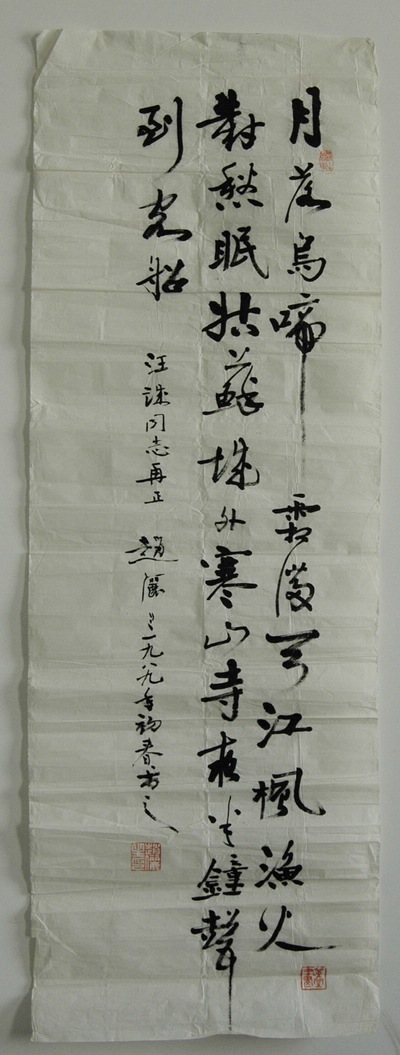 月落烏啼霜滿天江楓漁火
對愁眠姑蘇城外寒山寺夜半鐘聲
到客船
汪詠同志再正
趙 一九八九年初春書之